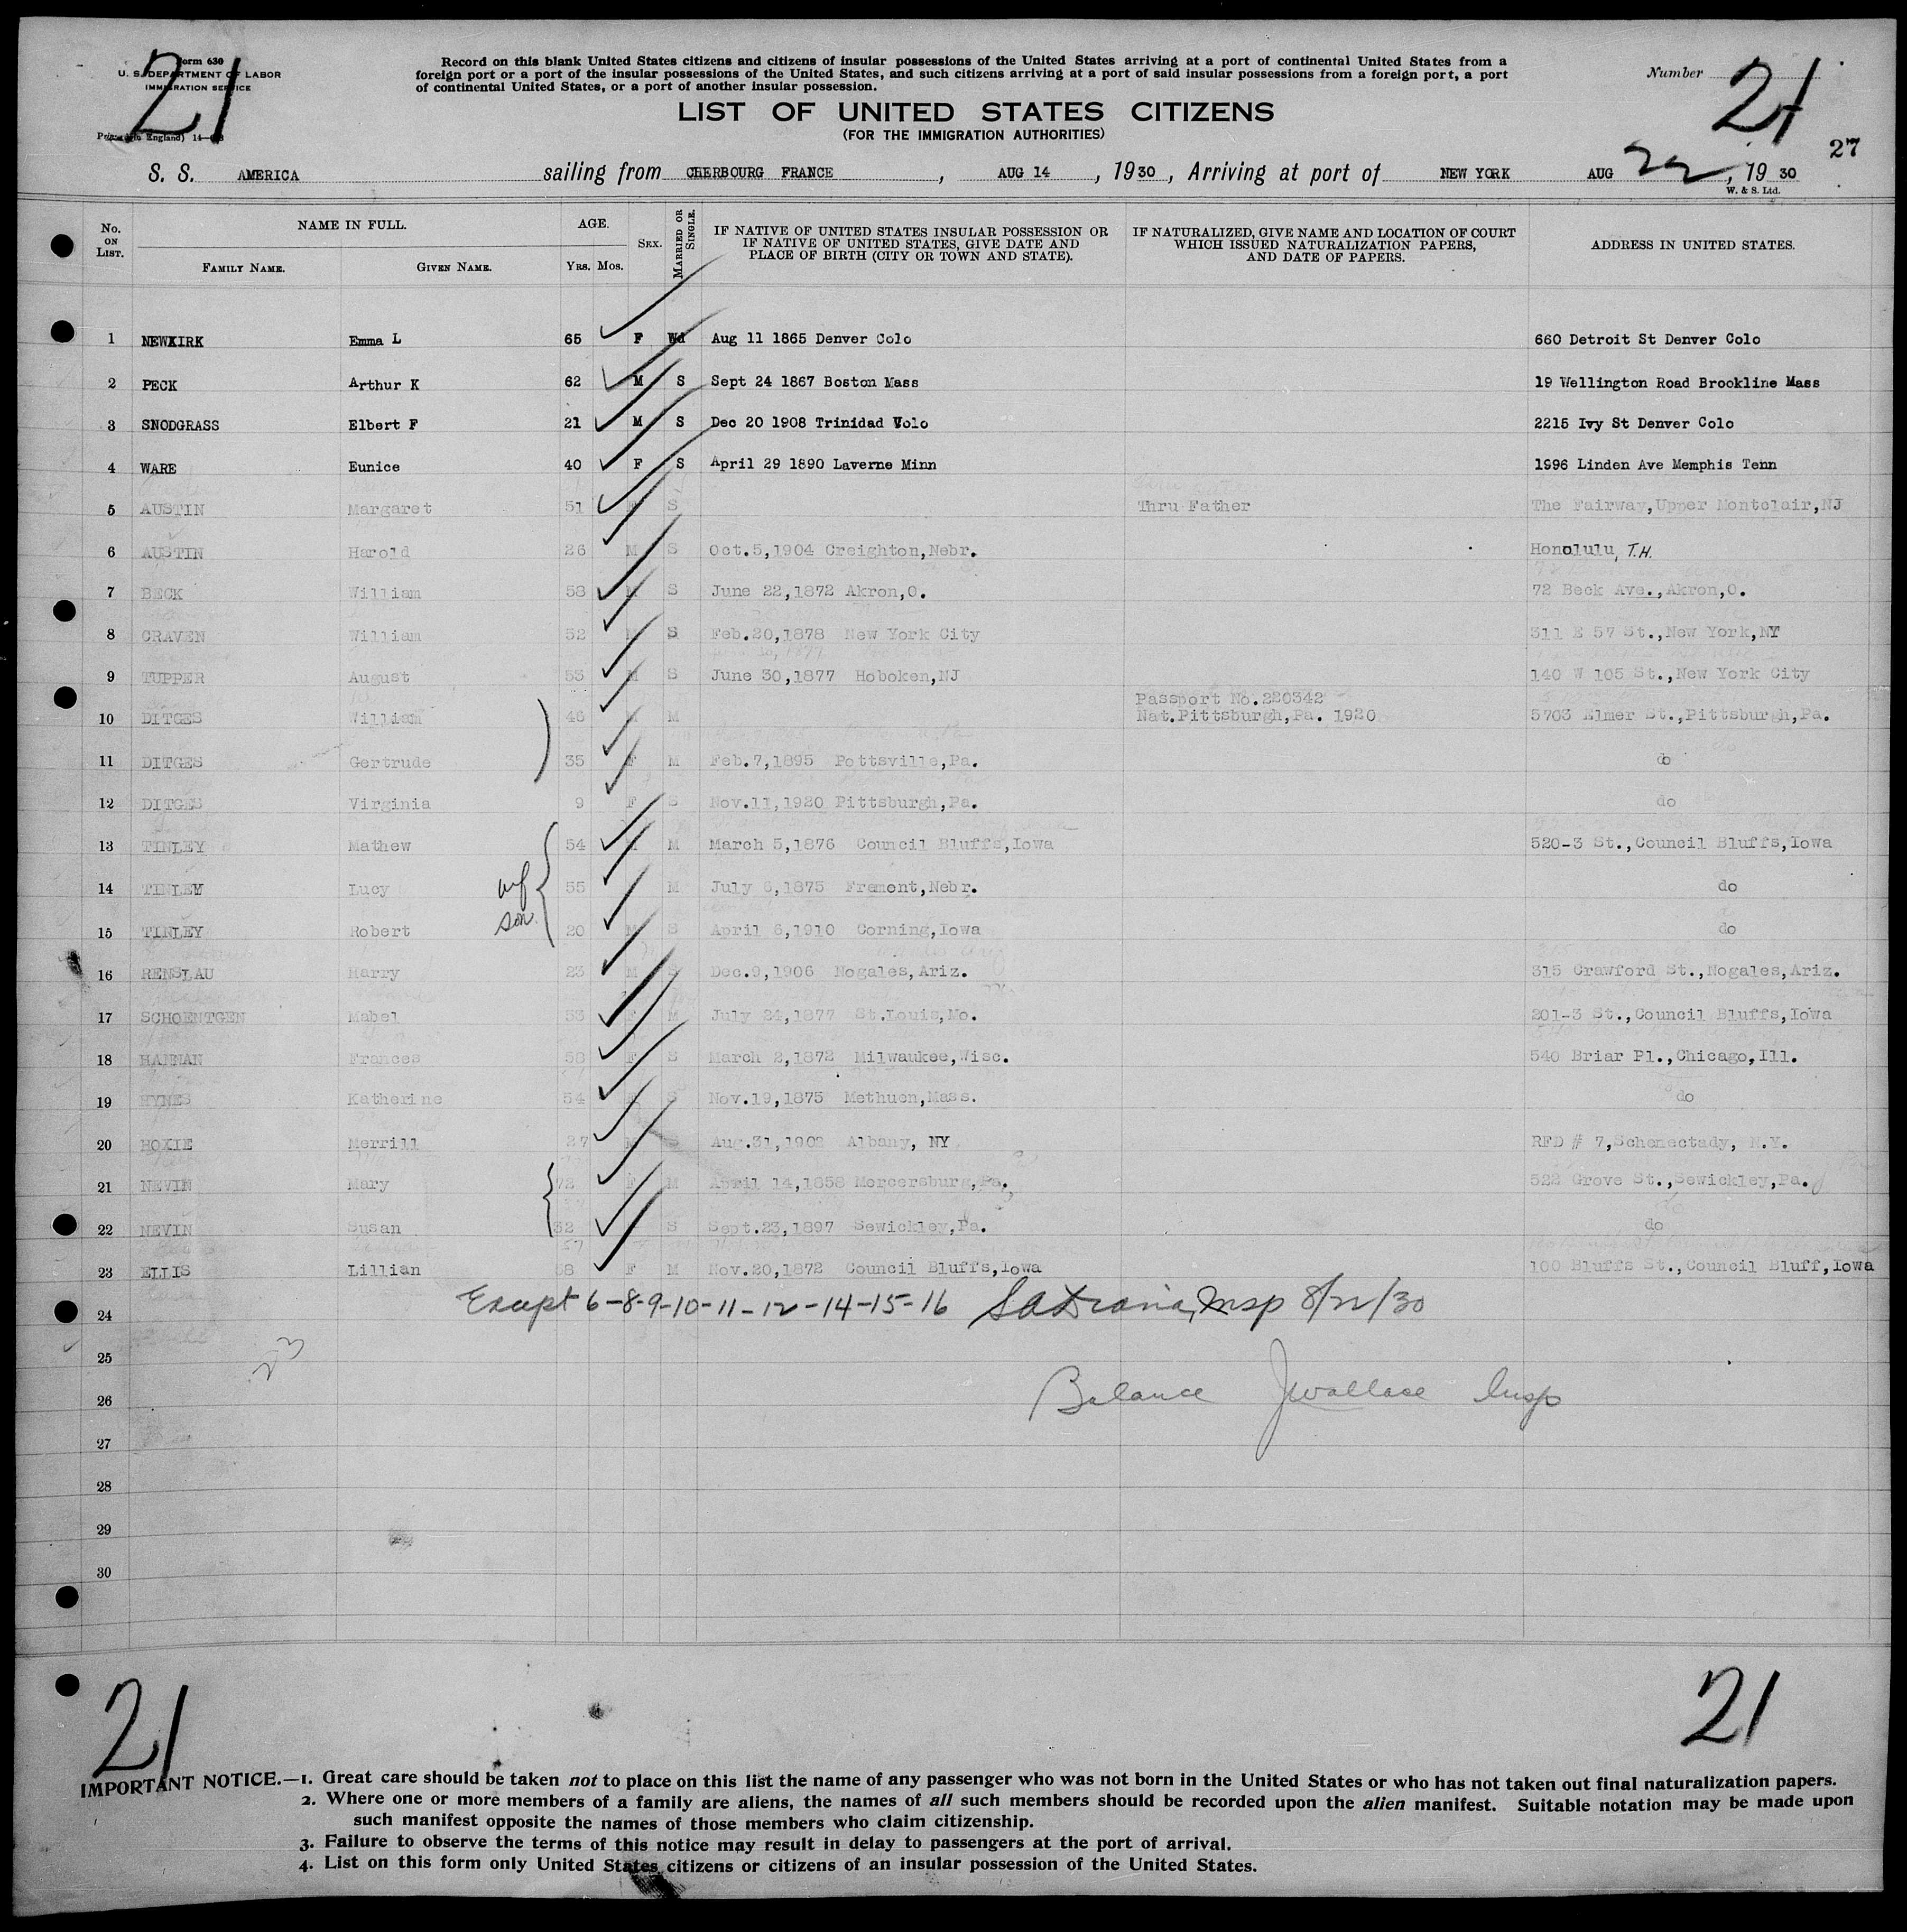 21
Form 630
U. S. DEPARTMENT OF LABOR
IMMIGRATION SERVICE
Record on this blank United States citizens and citizens of insular possessions of the United States arriving at a port of continental United States from a
foreign port or a port of the insular possessions of the United States, and such citizens arriving at a port of said insular possessions from a foreign port, a port
of continental United States, or a port of another insular possession.
Number 21
LIST OF UNITED STATES CITIZENS
(FOR THE IMMIGRATION AUTHORITIES)
27
S. S. AMERICA sailing from CHERBOURG FRANCE, AUG 14, 1930, Arriving at port of NEW YORK AUG 22, 1930
W. & S. Ltd.
No. ON LIST. NAME IN FULL. FAMILY NAME. GIVEN NAME. AGE. YRS. MOS. SEX. MARRIED OR SINGLE. IF NATIVE OF UNITED STATES INSULAR POSSESSION OR IF NATIVE OF UNITED STATES, GIVE DATE AND PLACE OF BIRTH (CITY OR TOWN AND STATE). IF NATURALIZED, GIVE NAME AND LOCATION OF COURT WHICH ISSUED NATURALIZATION PAPERS, AND DATE OF PAPERS. ADDRESS IN UNITED STATES.
1 NEWKIRK Emma L 65 F Wd Aug 11 1865 Denver Colo 660 Detroit St Denver Colo
2 PECK Arthur K 62 M S Sept 24 1867 Boston Mass 19 Wellington Road Brookline Mass
3 SNODGRASS Elbert F 21 M S Dec 20 1908 Trinidad Volo 2215 Ivy St Denver Colo
4 WARE Eunice 40 F S April 29 1890 Laverne Minn 1996 Linden Ave Memphis Tenn
5 AUSTIN Margaret 51 S Thru Father The Fairway,Upper Montclair,NJ
6 AUSTIN Harold 26 M S Oct.5,1904 Creighton,Nebr. Honolulu, T.H.
7 BECK William 58 M S June 22,1872 Akron,O. 72 Beck Ave.,Akron,O.
8 CRAVEN William 52 M S Feb.20,1878 New York City 311 E 57 St.,New York,NY
9 TUPPER August 53 M S June 30,1877 Hoboken,NJ 140 W 105 St.,New York City
Passport No.220342
10 DITGES William 46 M M Nat.Pittsburgh,Pa. 1920 5703 Elmer St.,Pittsburgh,Pa.
11 DITGES Gertrude 35 F M Feb.7,1895 Pottsville,Pa. do
12 DITGES Virginia 9 F S Nov.11,1920 Pittsburgh,Pa. do
13 TINLEY Mathew 54 M March 5,1876 Council Bluffs,Iowa 520-3 St.,Council Bluffs,Iowa
14 TINLEY Lucy wf 55 M July 6,1875 Fremont,Nebr. do
15 TINLEY Robert son 20 M S April 6,1910 Corning,Iowa do
16 RENSLAU Harry 23 M S Dec.9,1906 Nogales,Ariz. 315 Crawford St.,Nogales,Ariz.
17 SCHOENTGEN Mabel 53 F M July 24,1877 St.Louis,Mo. 201-3 St.,Council Bluffs,Iowa
18 HANNAN Frances 58 F S March 2,1872 Milwaukee,Wisc. 540 Briar Pl.,Chicago,Ill.
19 HYNES Katherine 54 F S Nov.19,1875 Methuen,Mass. do
20 HOXIE Merrill 27 M S Aug.31,1902 Albany, NY RFD # 7,Schenectady, N.Y.
21 NEVIN Mary 72 F M April 14,1858 Mercersburg,Pa. 522 Grove St.,Sewickley,Pa.
22 NEVIN Susan 32 S Sept.23,1897 Sewickley,Pa. do
23 ELLIS Lillian 58 F M Nov.20,1872 Council Bluffs,Iowa 100 Bluffs St.,Council Bluff,Iowa
24 Except 6-8-9-10-11-12-14-15-16 Insp 8/22/30
23
25
26 Balance JWallace Insp
27
28
29
30
21
21
IMPORTANT NOTICE.—1. Great care should be taken not to place on this list the name of any passenger who was not born in the United States or who has not taken out final naturalization papers.
2. Where one or more members of a family are aliens, the names of all such members should be recorded upon the alien manifest. Suitable notation may be made upon
such manifest opposite the names of those members who claim citizenship.
3. Failure to observe the terms of this notice may result in delay to passengers at the port of arrival.
4. List on this form only United States citizens or citizens of an insular possession of the United States.